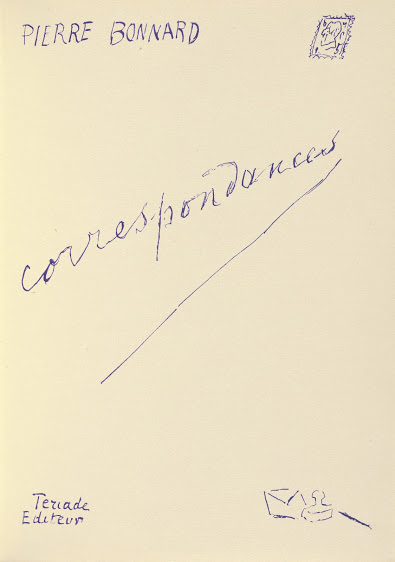 PIERRE BONNARD
correspondances
Teriade
Editeur